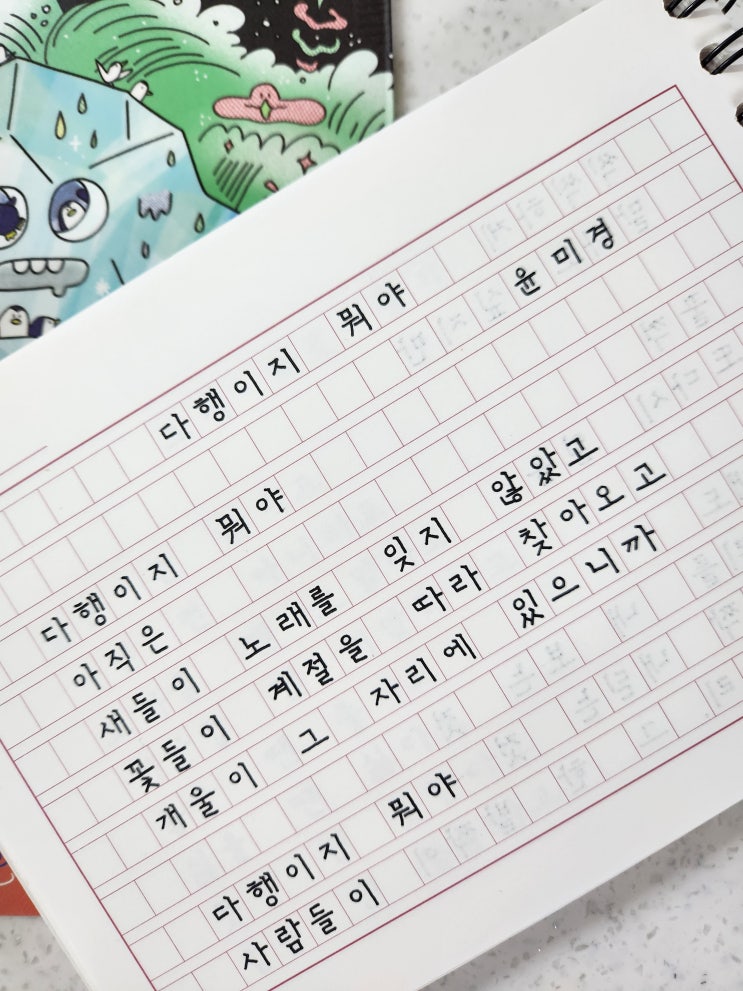 다행이지 뭐야
윤미경
다행이지 뭐야
아직은
새들이 노래를 잊지 않았고
꽃들이 계절을 따라 찾아오고
개울이 그 자리에 있으니까
다행이지 뭐야
사람들이